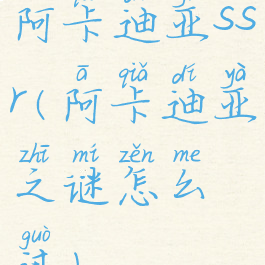 阿卡迪亚ss
ā qiǎ dí yà
r(阿卡迪亚
zhī mí zěn me
之谜怎么
guò
过)